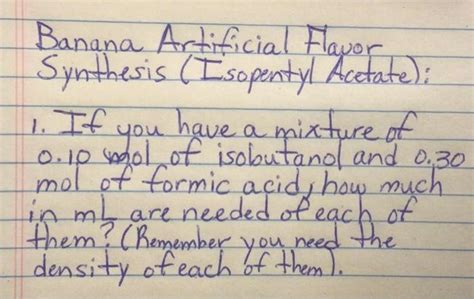 Banana Artificial Flavor
Synthesis (Isopentyl Acetate):
1. If you have a mixture of
0.10 mol of isobutanol and 0.30
mol of formic acid, how much
in mL are needed of each of
them? (Remember you need the
density of each of them).